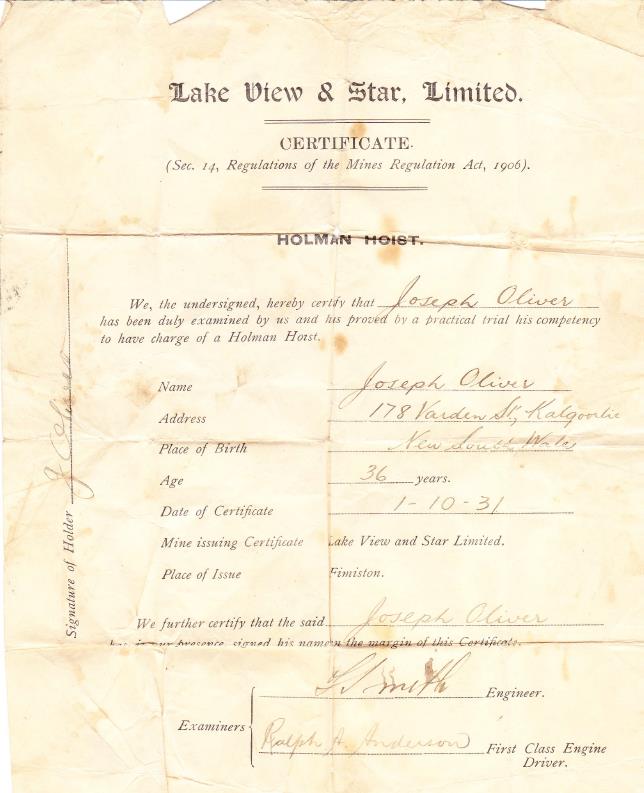 Lake View & Star, Limited.
CERTIFICATE.
(Sec. 14, Regulations of the Mines Regulation Act, 1906).
HOLMAN HOIST.
We, the undersigned, hereby certify that Joseph Oliver
has been duly examined by us and his proved by a practical trial his competency
to have charge of a Holman Hoist.
Name Joseph Oliver
Address 178 Varden St, Kalgoorlie
Place of Birth New South Wales
Age 36 years.
Date of Certificate 1-10-31
Mine issuing Certificate Lake View and Star Limited.
Place of Issue Fimiston.
We further certify that the said Joseph Oliver
has in our presence signed his name in the margin of this Certificate.
Smith Engineer.
Examiners
Ralph A. Anderson First Class Engine
Driver.
Signature of Holder J Oliver